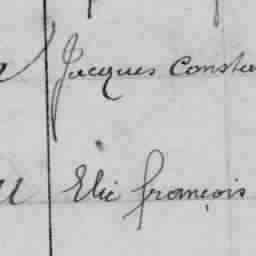 Jacques Consta
Elie françois